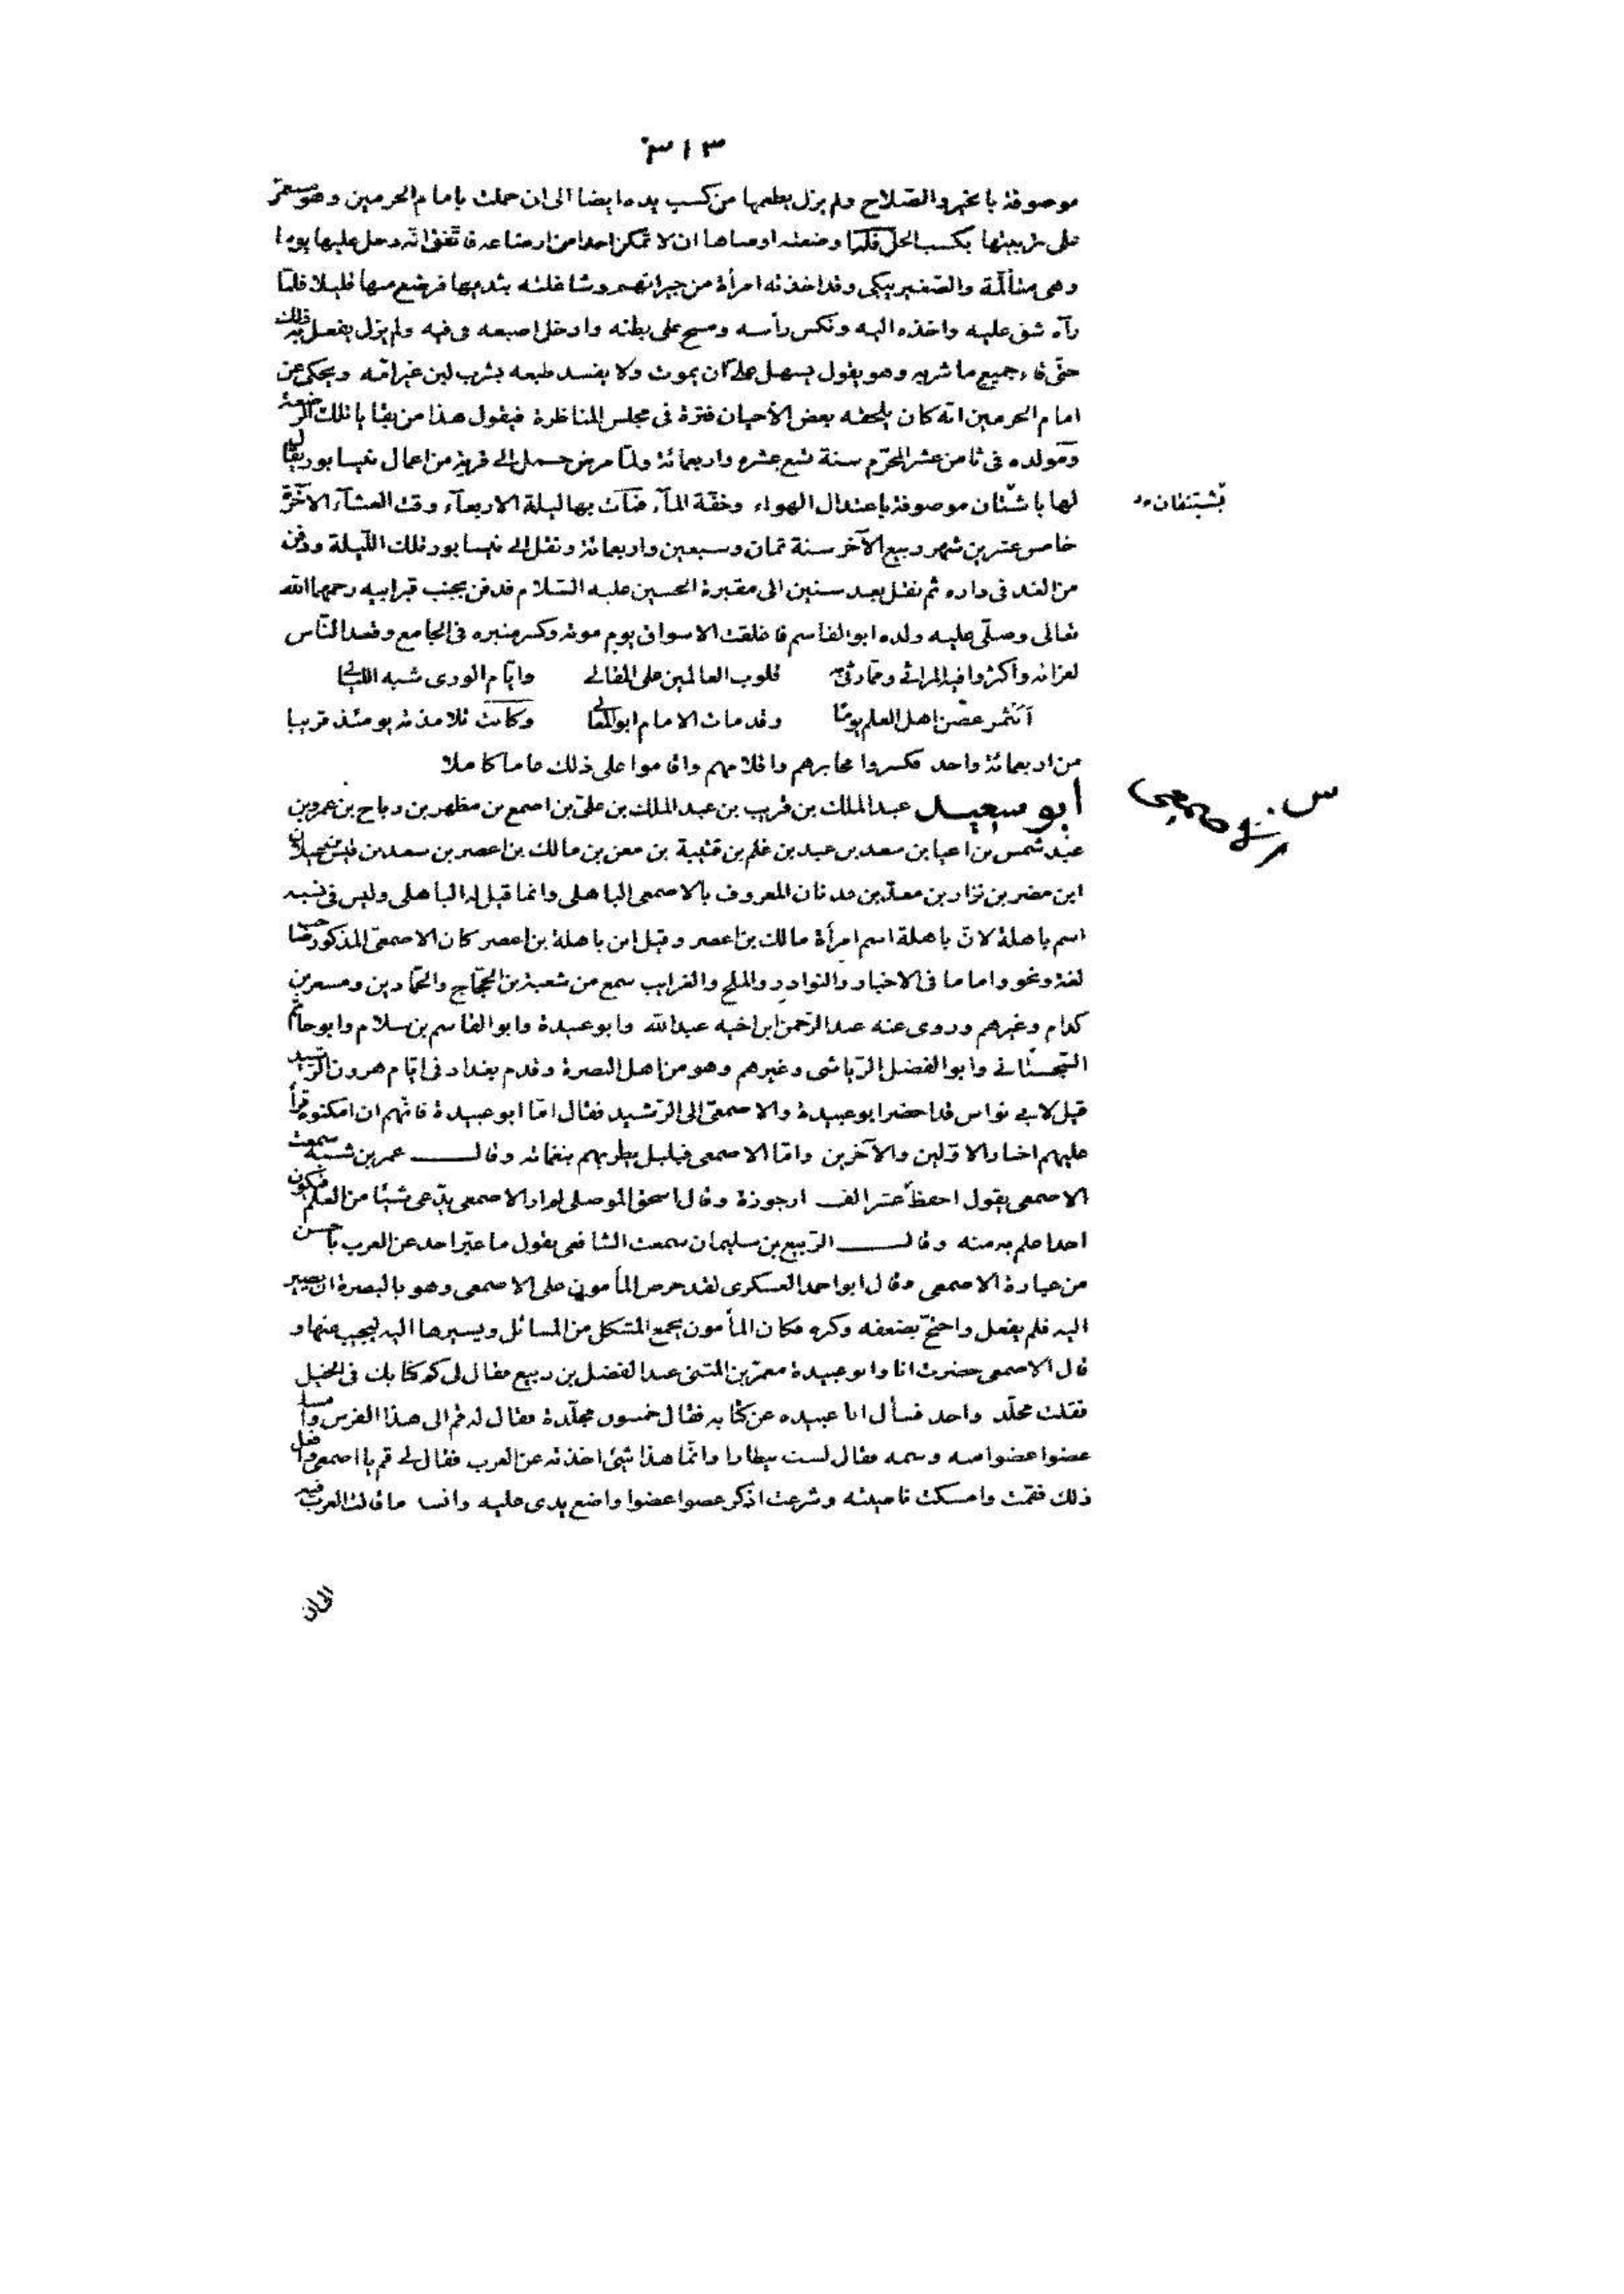 ٣١٣
موصوفة بالخير والصّلاح ولم يزل يطعمها من كسب يده ايضا الى ان حملت بامام الحرمين وهو مستمرّ
على تربيتها بكسب الحلّ فلمّا وضعته اوصاها ان لا تمكن احدا من ارضاعه فاتّفق انّه دخل عليها يوما
وهى متألّمة والصّغير يبكى وقد اخذته امرأة من جيرانهم وشاغلته بثديها فرضع منها قليلا فلمّا
رآه شق عليه واخذه اليه ونكس رأسه ومسح على بطنه وادخل اصبعه فى فيه ولم يزل يفعل به ذلك
حتّى قاء جميع ما شربه وهو يقول يسهل علىّ ان يموت ولا يفسد طبعه بشرب لبن غير امّه ويحكى عن
امام الحرمين انّه كان يلحقه بعض الأحيان فترة فى مجلس المناظرة فيقول هذا من بقايا تلك الرّضعة
ومولده فى ثامن عشر المحرّم سنة تسع عشره واربعمائة ولمّا مرض حمل الى قرية من اعمال نيسابور يقال
لها باشتنان موصوفة باعتدال الهواء وخفّة المآء فمات بها ليلة الاربعآء وقت العشآء الآخرة
بشتنقان
خامس عشرين شهر ربيع الآخر سنة ثمان وسبعين واربعمائة ونقل الى نيسابور تلك اللّيلة ودفن
من الغد فى داره ثم نقل بعد سنين الى مقبرة الحسين عليه السّلام فدفن بجنب قبر ابيه رحمهما الله
تعالى وصلّى عليه ولده ابو القاسم فاغلقت الاسواق يوم موته وكسر منبره فى الجامع وقعد النّاس
لعزائه واكثروا فيه المراثى وممّا رثى به قلوب العالمين على المقالى وايّام الورى شبه اللّيالى
أتثمر غصن اهل العلم يومًا وقد مات الامام ابو المعالى وكانت تلامذته يومئذ قريبا
من اربعمائة واحد فكسروا محابرهم واقلامهم واقاموا على ذلك عاما كاملا
أبو سعيد عبد الملك بن قريب بن عبد الملك بن علىّ بن اصمع بن مظهر بن رباح بن عمرو بن
عبد شمس بن اعيا بن سعد بن عبد بن غلم بن قتيبة بن معن بن مالك بن اعصر بن سعد بن قيس عيلان
ابن مضر بن نزار بن معدّ بن عدنان المعروف بالاصمعى الباهلى وانما قيل له الباهلى وليس فى نسبه
اسم باهلة لانّ باهلة اسم امرأة مالك بن اعصر وقيل ابن باهلة بن اعصر كان الاصمعىّ المذكور صاحب
لغة ونحو واماما فى الاخبار والنوادر والملح والغرايب سمع من شعبة بن الحجّاج والحمّادين ومسعر بن
كدام وغيرهم وروى عنه عبد الرّحمن ابن اخيه عبد الله وابو عبيدة وابو القاسم بن سلام وابو حاتم
السّجستانى وابو الفضل الرّياشى وغيرهم وهو من اهل البصرة وقدم بغداد فى ايّام هرون الرّشيد
قيل لابى نواس قد احضر ابو عبيدة والاصمعىّ الى الرّشيد فقال امّا ابو عبيدة فانّهم ان امكنوه قرأ
عليهم اخبار الاوّلين والآخرين وامّا الاصمعى فبلبل يطربهم بنغماته وقال عمر بن شبه سمعت
الاصمعى يقول احفظ عشر الف ارجوزة وقال اسحق الموصلى لم ار الاصمعى يدّعى شيئا من العلم فيكون
احدا علم به منه وقال الرّبيع بن سليمان سمعت الشافعى يقول ما عبّر احد عن العرب باحسن
من عبارة الاصمعى وقال ابو احمد العسكرى لقد حرص المأمون على الاصمعى وهو بالبصرة ان يصير
اليه فلم يفعل واحتجّ بضعفه وكبره فكان المأمون يجمع المشكل من المسائل ويسيرها اليه ليجيب عنها و
قال الاصمعى حضرت انا وابو عبيدة معمر بن المثنى عند الفضل بن ربيع فقال لى كم كتابك فى الخيل
فقلت مجلّد واحد فسأل ابا عبيده عن كتابه فقال خمسون مجلّدة فقال له قم الى هذا الفرس وامسك
عضوا عضوا منه وسمه فقال لست بيطارا وانّما هذا شئ اخذته عن العرب فقال لى قم يا اصمعى وافعل
ذلك فقمت وامسكت ناصيته وشرعت اذكر عضوا عضوا واضع يدى عليه وانشد ما قالت العرب فيه
الى ان